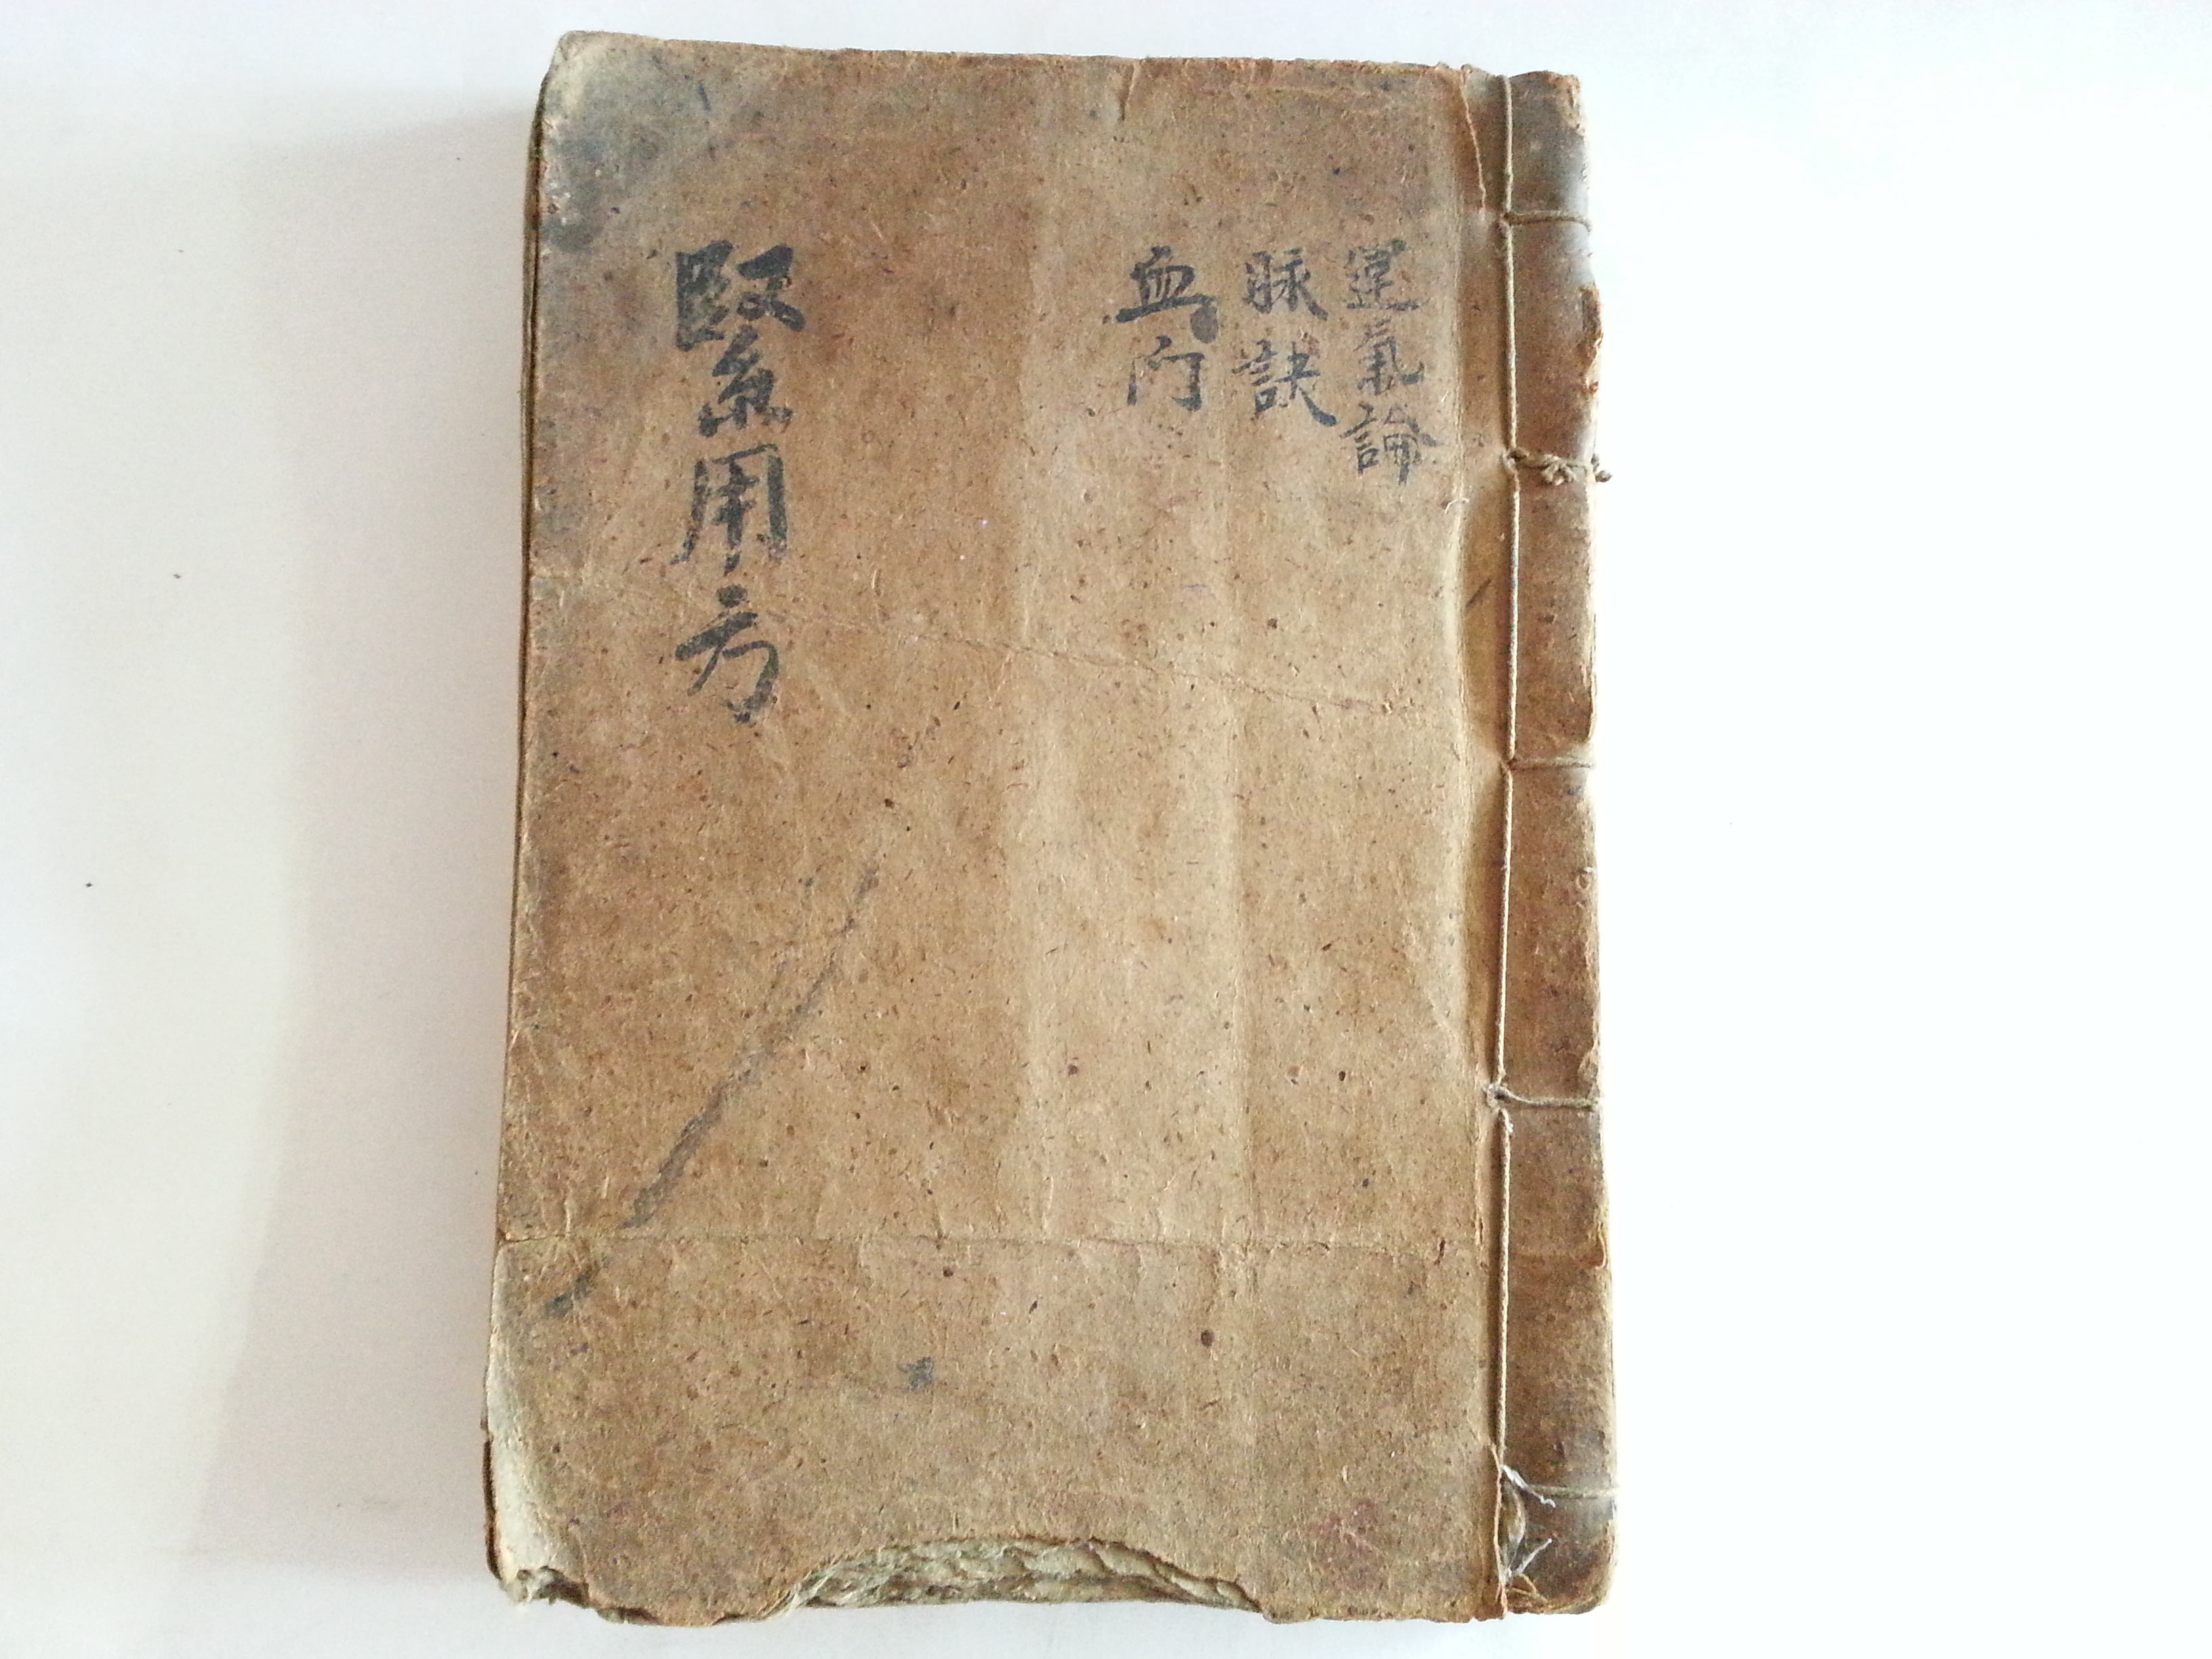 運氣論
脉訣
血门
緊用方